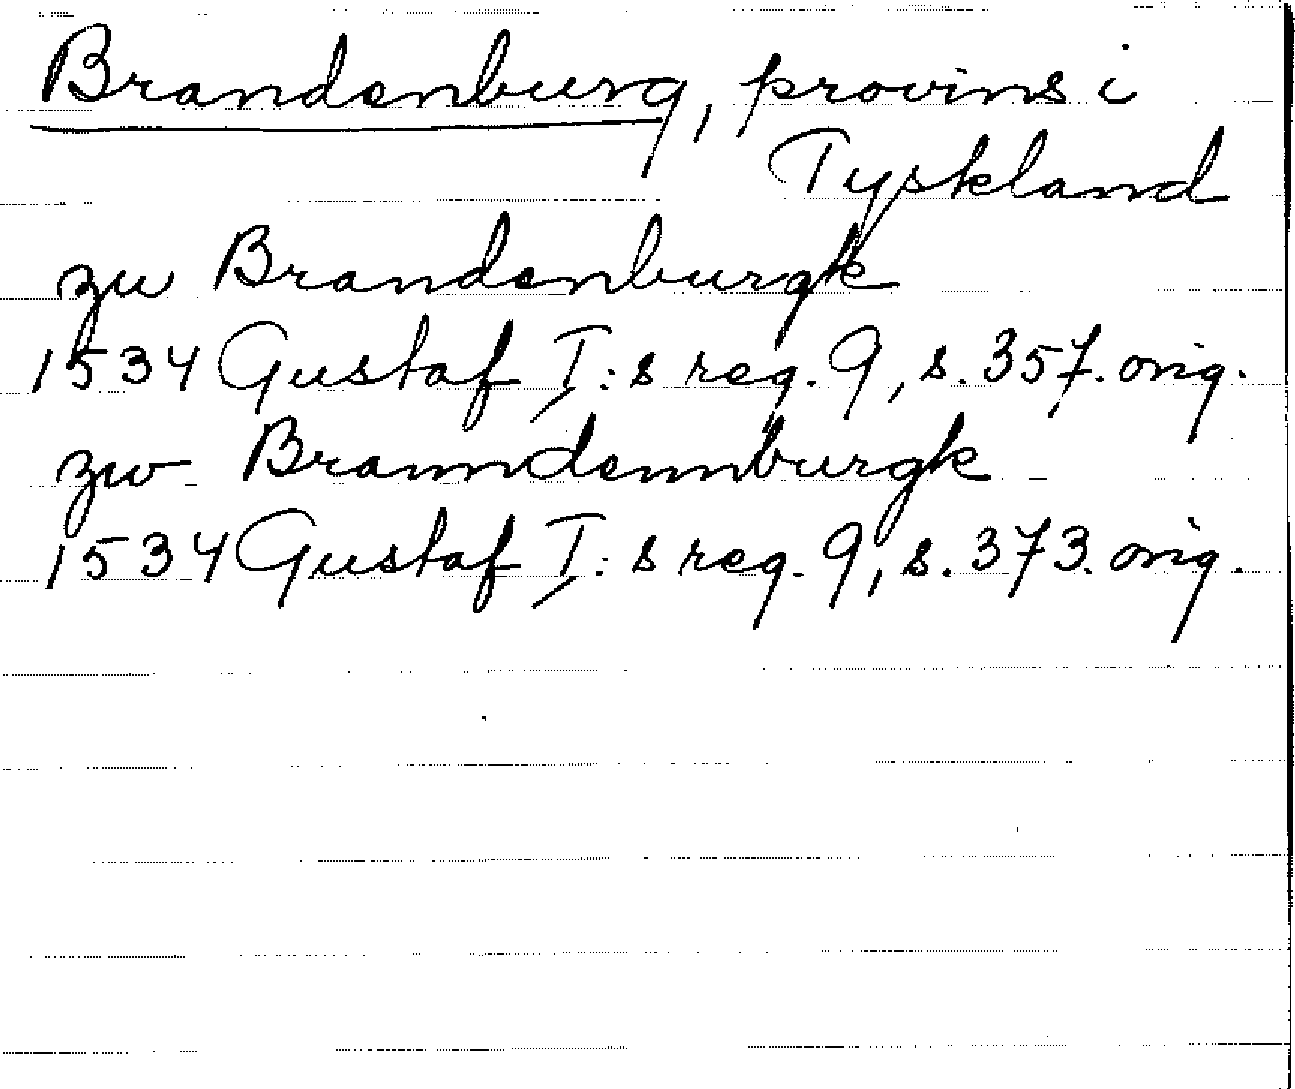 Brandenburg, provins i
Tyskland
zu Brandenburgk
1534 Gustaf I:s reg. 9, s. 357. orig.
zw Branndennburgk
1534 Gustaf I:s reg. 9, s. 373. orig.